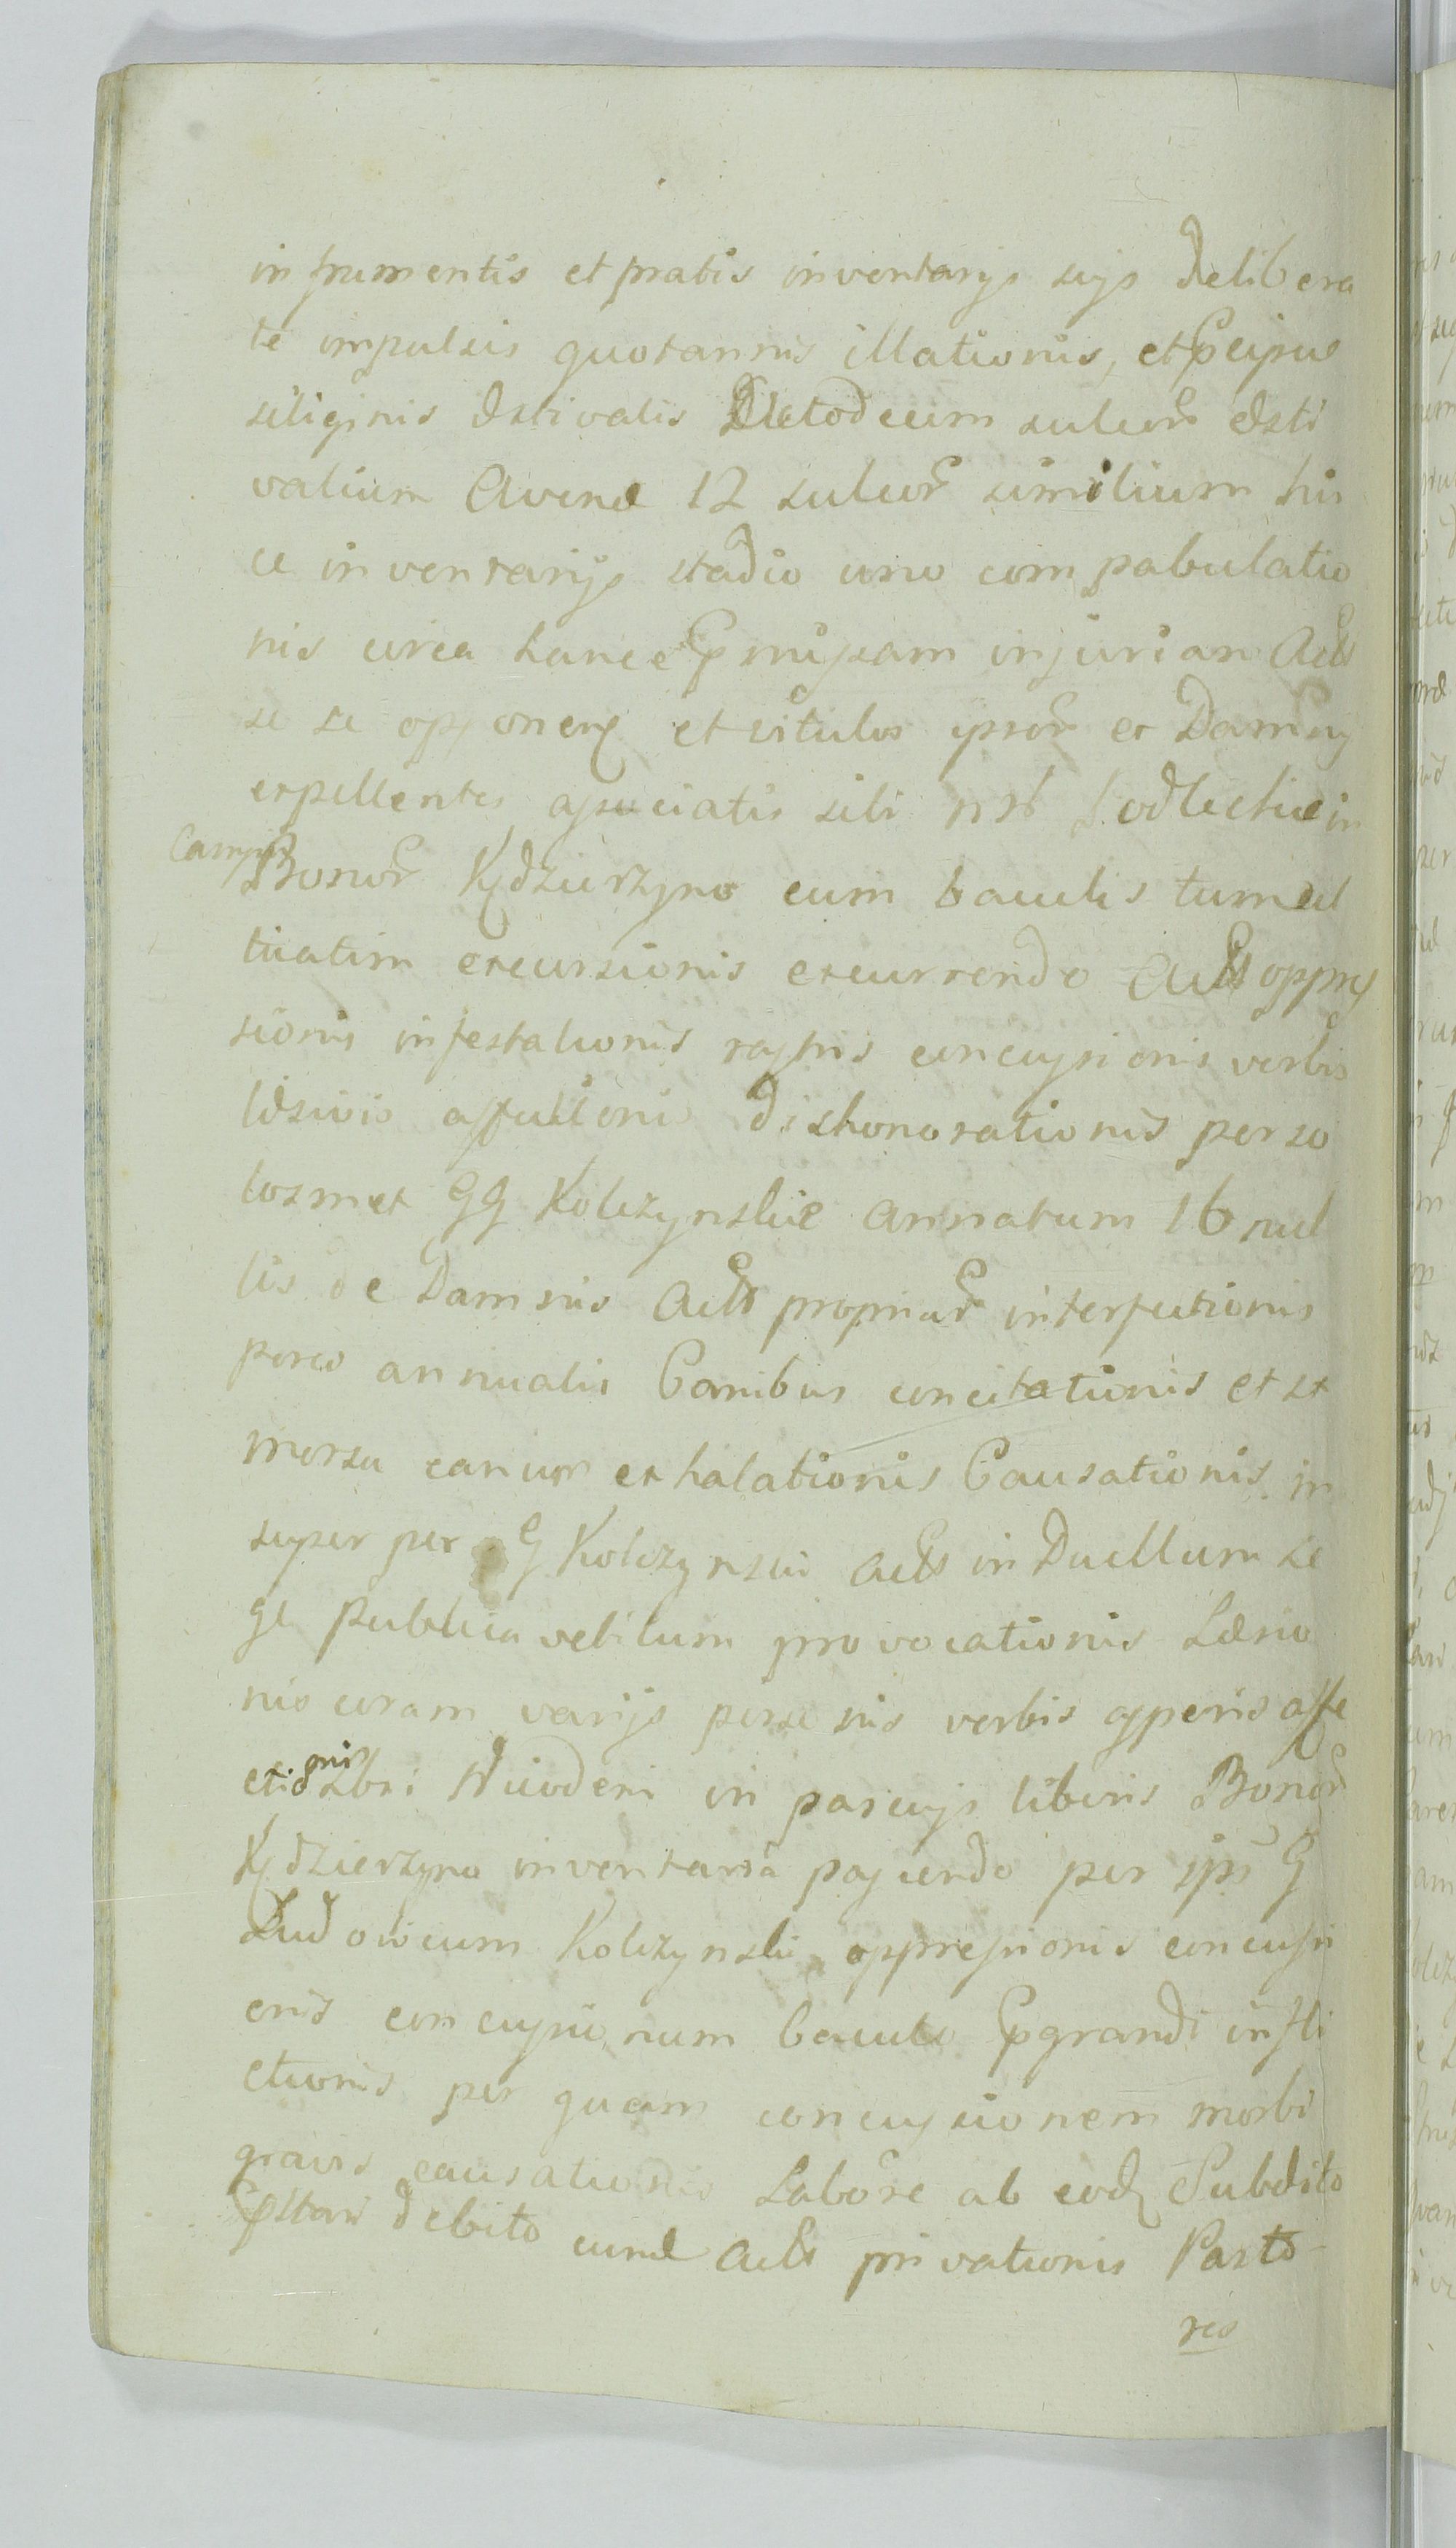 in frumentis et pratis inventarys suys delibera
te impulsis quotannis illationis, et
siliginis Æstivalis sulcor Æsti
valium Avenæ 12 sulcor similium his
ce inventarijs stadio uno cum pabulatio
nis circa hance missam injuriam Actt
se se opponen et vitulos ipsor ex Damny
expellentes assuciatis sibi in
Campis
Bonor Kędzierzyno cum baculis tumul
tuatim excursionis excurrendo Actt oppres
sionis infestationis concussionis verbis
læsivis affectionis dishonorationis per so
losmet GG Kolczynskie annatum 16 nul
lis de Damnis Actt propriar interfectionis
porco annualis Canibus concitationis et
morsu canum exhalationis Causationis in
super per G Kolczynski Actt in Duellum Le
ge publica vetitum provocationis Læsio
nis coram varijs personis verbis asperis affe
ctionis in pascuys liberis Bonor
Kędzierzyno inventaria pascendo per ips G
Ludovicum Kolczynski oppressionis concussi
onis concussionum baculo grandi infli
ctionis per quam concussionem morbi
gravis causationis Labore ab eod Subdito
debito Actt privationis Pasto-
ris